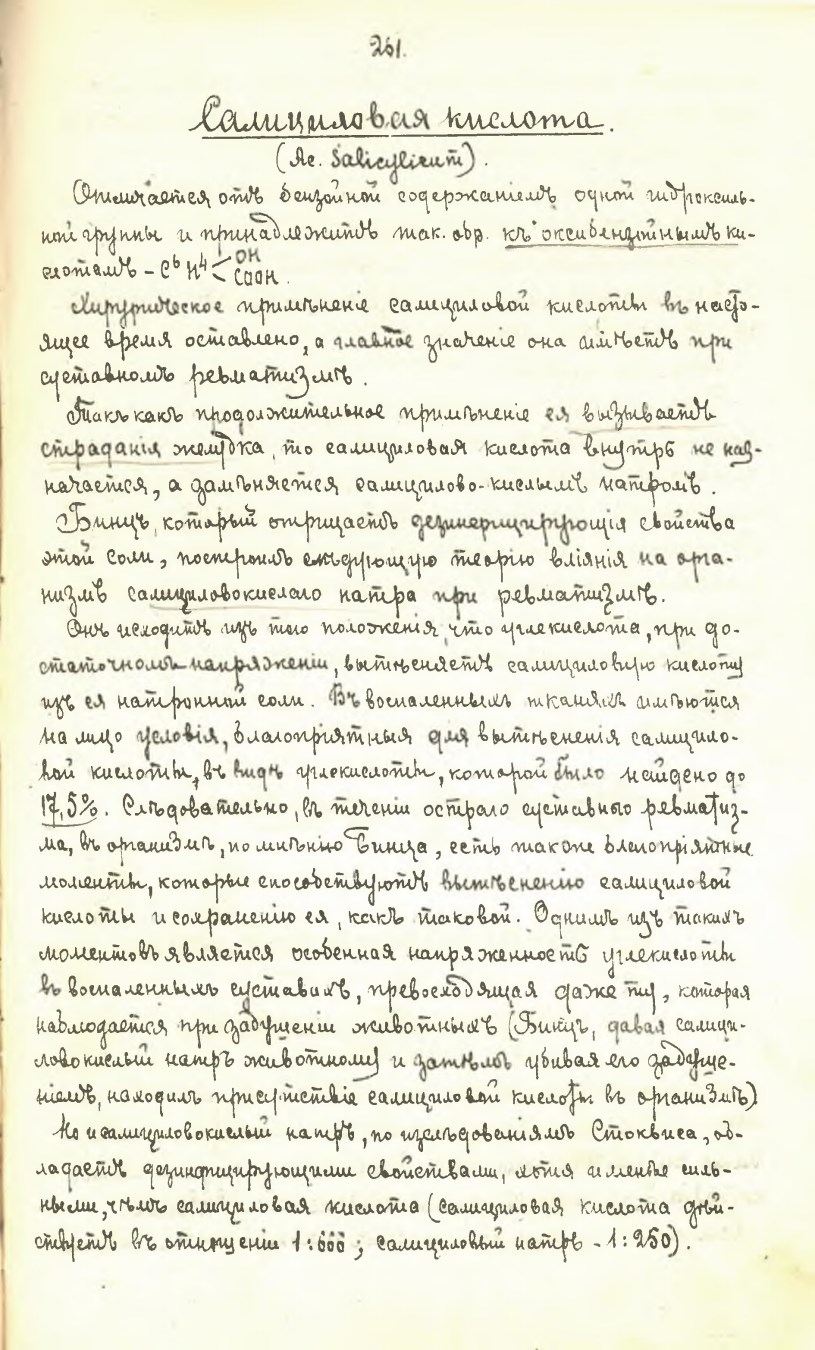 261.
Салициловая кислота.
(Ac. Salicylicum).
Отличается отъ бензойной содержаніемъ одной гидроксиль-
ной группы и принадлежитъ так. обр. къ оксибензойнымъ ки-
слотамъ – C6 H4 < OH COOH.
Хирургическое примѣненіе салициловой кислоты въ насто-
ящее время оставлено, а главное значеніе она имѣетъ при
суставномъ ревматизмѣ.
Такъ какъ продолжительное примѣненіе ея вызываетъ
страданія желудка, то салициловая кислота внутрь не наз-
начается, а замѣняется салицилово-кислымъ натромъ.
Бинцъ, который отрицаетъ дезинфицирующія свойства
этой соли, построилъ слѣдующую теорію вліянія на орга-
низмъ салициловокислаго натра при ревматизмѣ.
Онъ исходитъ изъ того положенія, что углекислота, при до-
статочномъ напряженіи, вытѣсняетъ салициловую кислоту
изъ ея натронной соли. Въ воспаленныхъ тканяхъ имѣются
на лицо условія, благопріятныя для вытѣсненія салицило-
вой кислоты, въ видѣ углекислоты, которой было найдено до
17,5%. Слѣдовательно, въ теченіи остраго суставного ревматиз-
ма, въ организмѣ, по мнѣнію Бинца, есть такоже благопріятные
моменты, которые способствуютъ вытѣсненію салициловой
кислоты и сохраненію ея, какъ таковой. Однимъ изъ такихъ
моментовъ является особенная напряженность углекислоты
въ воспаленныхъ суставахъ, превосходящая даже ту, которая
наблюдается при задушеніи животныхъ (Бинцъ, давая салици-
ловокислый натръ животному и затѣмъ убивая его задуше-
ніемъ, находилъ присутствіе салициловой кислоты въ организмѣ)
Но и салициловокислый натръ, по изслѣдованіямъ Стоквиса, об-
ладаетъ дезинфицирующими свойствами, хотя и менѣе силь-
ными, чѣмъ салициловая кислота (салициловая кислота дѣй-
ствуетъ въ отношеніи 1: ; салициловый натръ – 1:250).